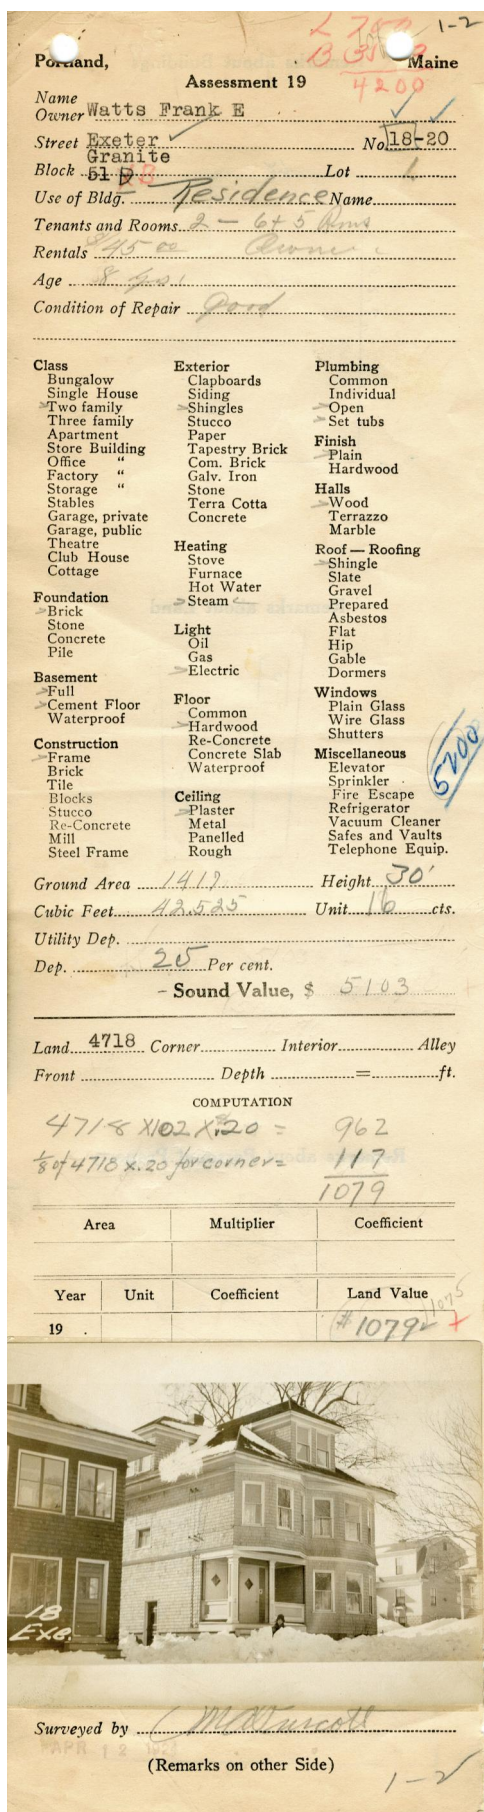 L 700 1-2
B 3500
4200
Portland, Maine
Assessment 19
Name
Owner Watts Frank E
Street Exeter No 18-20
Granite
Block 51 B Lot 1
Use of Bldg. Residence Name
Tenants and Rooms 2 - 6+5 Rms
Rentals $45 00 Owner
Age 8 yrs.
Condition of Repair Good
Class
Bungalow
Single House
Two family
Three family
Apartment
Store Building
Office "
Factory "
Storage "
Stables
Garage, private
Garage, public
Theatre
Club House
Cottage
Foundation
Brick
Stone
Concrete
Pile
Basement
Full
Cement Floor
Waterproof
Construction
Frame
Brick
Tile
Blocks
Stucco
Re-Concrete
Mill
Steel Frame
Exterior
Clapboards
Siding
Shingles
Stucco
Paper
Tapestry Brick
Com. Brick
Galv. Iron
Stone
Terra Cotta
Concrete
Heating
Stove
Furnace
Hot Water
Steam
Light
Oil
Gas
Electric
Floor
Common
Hardwood
Re-Concrete
Concrete Slab
Waterproof
Ceiling
Plaster
Metal
Panelled
Rough
Plumbing
Common
Individual
Open
Set tubs
Finish
Plain
Hardwood
Halls
Wood
Terrazzo
Marble
Roof — Roofing
Shingle
Slate
Gravel
Prepared
Asbestos
Flat
Hip
Gable
Dormers
Windows
Plain Glass
Wire Glass
Shutters
Miscellaneous
Elevator
Sprinkler
Fire Escape
Refrigerator
Vacuum Cleaner
Safes and Vaults
Telephone Equip.
5200
Ground Area 1417 Height 30'
Cubic Feet 42,525 Unit 16 cts.
Utility Dep.
Dep. 25 Per cent.
Sound Value, $ 5103
Land 4718 Corner Interior Alley
Front Depth = ft.
COMPUTATION
4718 X102 X.20 = 962
1/8 of 4718 X.20 for corner = 117
1079
Area Multiplier Coefficient
Year Unit Coefficient Land Value
1075
19 . # 1079
18
Exe.
Surveyed by
APR 12
(Remarks on other Side)
1-2